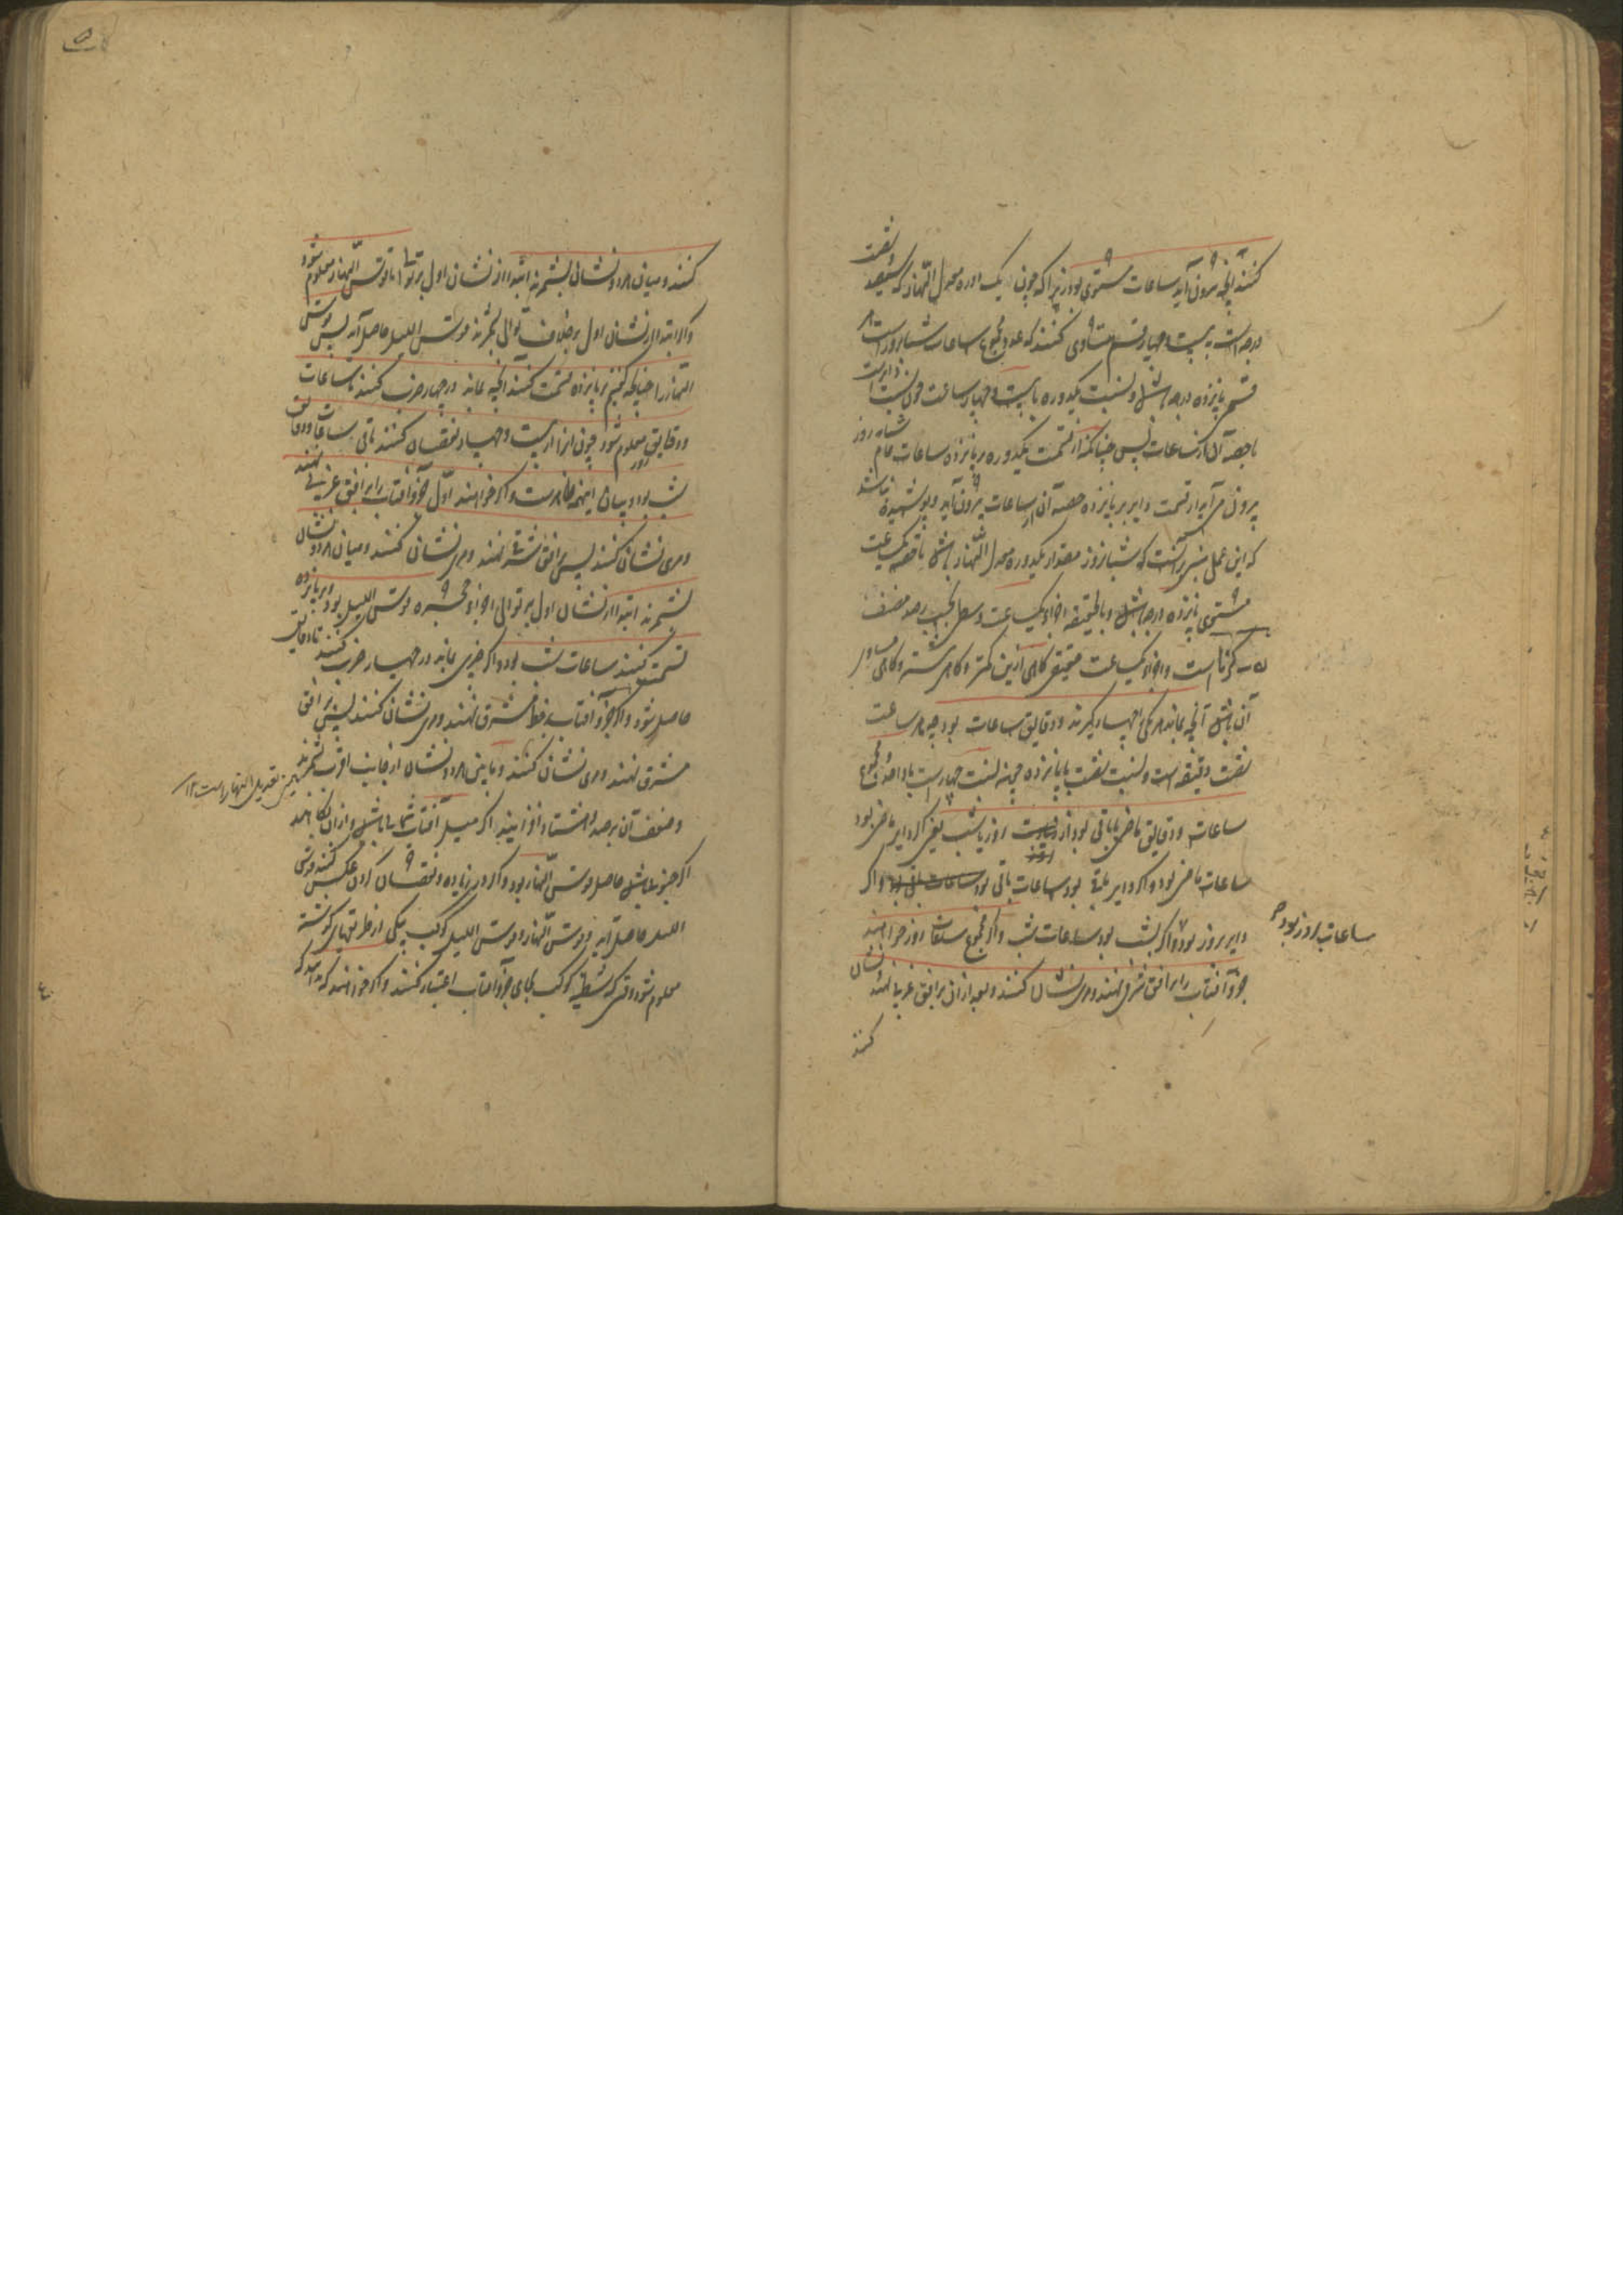 کنند آنچه بیرون آید ساعات مستوی بود زیرا که چون یک دوره معدل النهار که سیصد و شصت
درجه است به بیست و چهار قسم متساوی کنند که عدد مجموع ساعات شبانروز است هر
قسمی پانزده درجه باشد و نسبت یکدوره با بیست و چهار ساعت چون نسبت دایر است
با حصه آن از ساعات پس چنانکه از قسمت یکدوره بر پانزده ساعات تمام شبانه روز
بیرون می‌آید از قسمت دایر بر پانزده حصه آن از ساعات بیرون آید و پوشیده نباشد
که این عمل مبنی بر آنست که شبانروز مقدار یکدوره معدل النهار باشد تا حصه یکساعت
مستوی پانزده درجه باشد و بالحقیقه اجزاء یکساعت وسطی بحسب رصد مصنف
است و اجزاء یکساعت حقیقی گاهی ازین کمتر و گاهی بیشتر و گاهی مساوی
آن باشد آنچه بماند هر یکی را چهار گیرند و دقایق ساعات بود چه هر ساعت
شصت دقیقه است و نسبت شصت با پانزده چون نسبت چهار است با واحد و مجموع
ساعات و دقایق ماضی یا باقی بود از روز یا شب یعنی اگر دایر ماضی بود
ساعات ماضی بود و اگر دایر باقی بود ساعات باقی بود و اگر
دایر بروز بود ساعات روز بود و اگر بشب بود ساعات شب و اگر مجموع ساعات روز خواهند
جزو آفتاب را بر افق شرقی نهند و مری نشان کنند و بعد از آن بر افق غربی نهند و نشان
کنند
کنند و میان هر دو نشان بشمرند ابتدا از نشان اول بر توالی تا قوس النهار معلوم شود
و اگر ابتدا از نشان اول بر خلاف توالی بشمرند قوس اللیل حاصل آید پس قوس
النهار را چنانچه گفتیم بر پانزده قسمت کنند آنچه بماند در چهار ضرب کنند تا ساعات
و دقایق روز معلوم شود چون آنرا از بیست و چهار نقصان کنند باقی ساعات و دقایق
شب بود و بیان اینهمه ظاهر است و اگر خواهند اول جزو آفتاب را بر افق غربی نهند
و مری نشان کنند پس بر افق شرقی نهند و مری نشان کنند و میان هر دو نشان
بشمرند ابتدا از نشان اول بر توالی اجزاء حجره قوس اللیل بود و بر پانزده
قسمت کنند ساعات شب بود و اگر چیزی بماند در چهار ضرب کنند تا دقایق
حاصل شود و اگر جزو آفتاب بر خط مشرق نهند و مری نشان کنند پس بر افق
مشرق نهند و مری نشان کنند و مابین هر دو نشان از جانب اقرب بشمرند
همین تعدیل النهار است ۱۲
و ضعف آن بر صد و هشتاد افزایند اگر میل آفتاب شمالی باشد و از آن بکاهند
اگر جنوبی باشد حاصل قوس النهار بود و اگر در زیاده و نقصان کردن عکس کنند قوس
اللیل حاصل آید و قوس النهار و قوس اللیل کوکب بیکی از طریقهای گذشته
معلوم شود وقتی که شظیه کوکب بجای جزو آفتاب اعتبار کنند و اگر خواهند که بدانند که